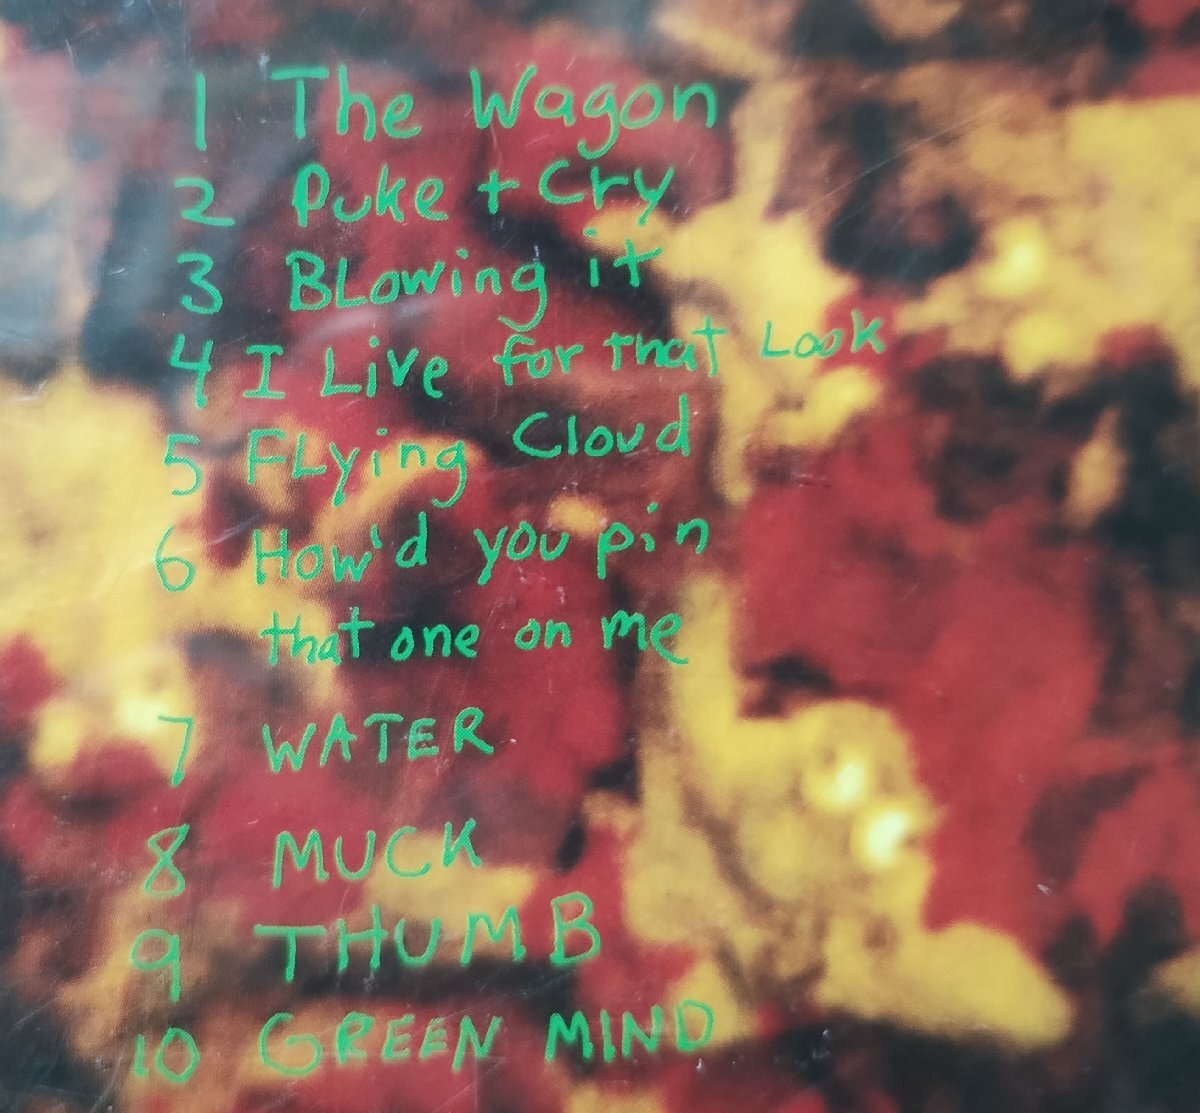 1 The Wagon
2 Puke + Cry
3 BLowing it
4 I Live for that Look
5 FLying Cloud
6 How'd you pin
that one on me
7 WATER
8 MUCK
9 THUMB
10 GREEN MIND